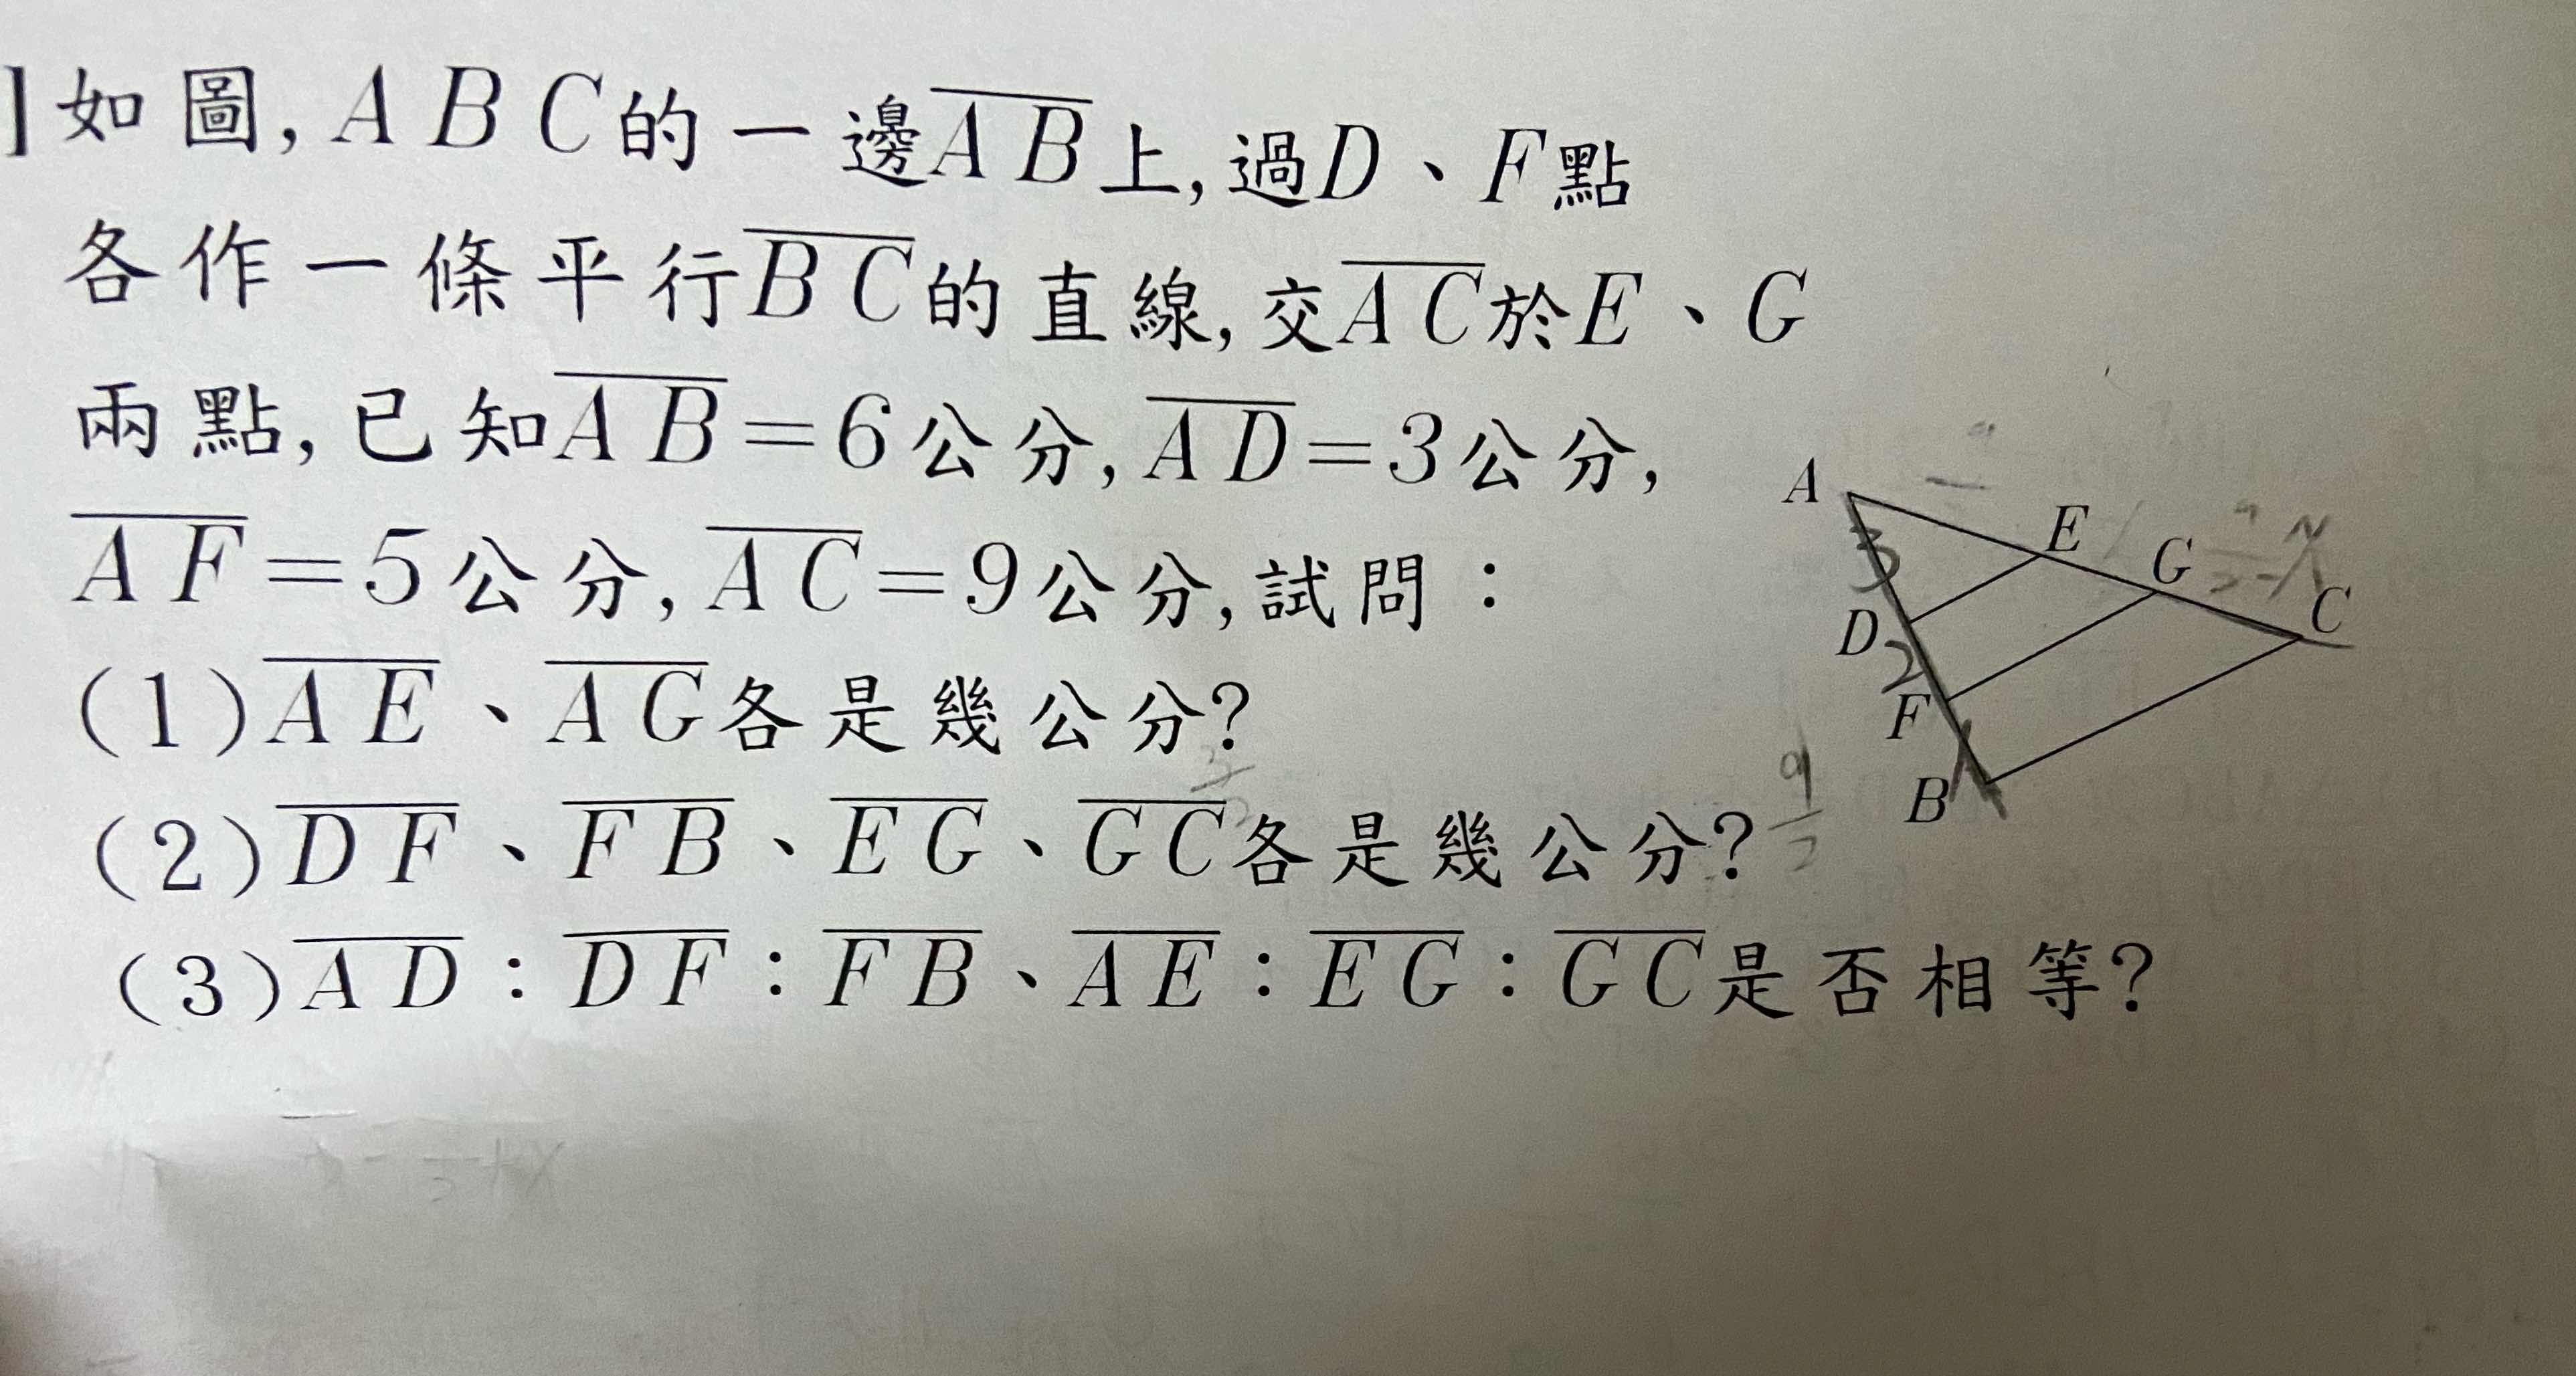 】如圖,ABC的一邊AB上,過D、F點
各作一條平行BC的直線,交AC於E、G
兩點,已知AB=6公分,AD=3公分,
AF=5公分,AC=9公分,試問：
(1)AE、AG各是幾公分?
(2)DF、FB、EG、GC各是幾公分?
(3)AD：DF：FB、AE：EG：GC是否相等?
A
E
G
C
D
F
B
3
2
1
9
2